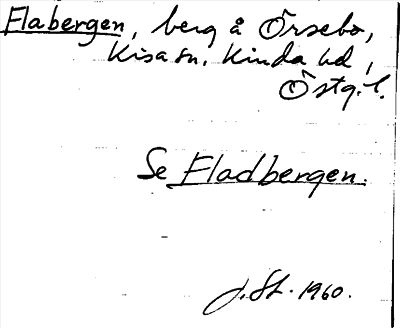 Flabergen, berg å Örsebo,
Kisa sn. Kinda hd,
Östg. l.
Se Fladbergen.
J. St. 1960.